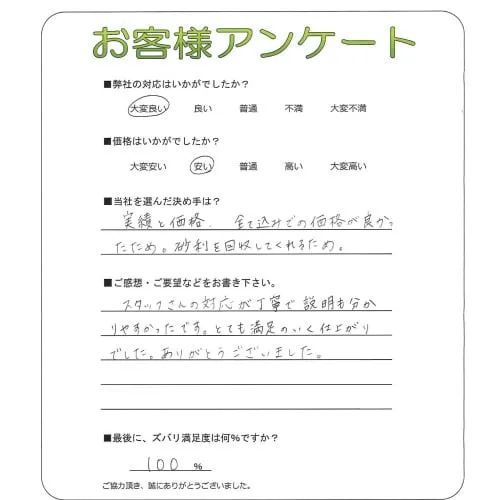 お客様アンケート
■弊社の対応はいかがでしたか？
大変良い 良い 普通 不満 大変不満
■価格はいかがでしたか？
大変安い 安い 普通 高い 大変高い
■当社を選んだ決め手は？
実績と価格、全て込みでの価格が良かっ
たため。砂利を回収してくれるため。
■ご感想・ご要望などをお書き下さい。
スタッフさんの対応が丁寧で説明も分か
りやすかったです。とても満足のいく仕上がり
でした。ありがとうございました。
■最後に、ズバリ満足度は何%ですか？
100 %
ご協力頂き、誠にありがとうございました。